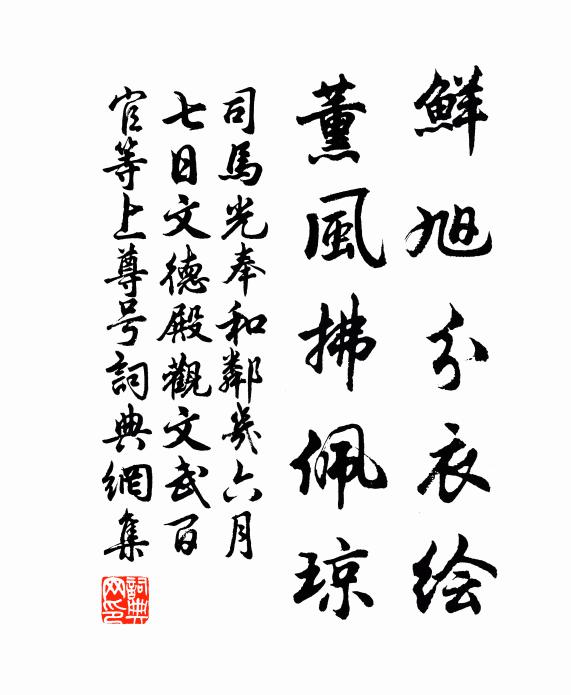 鮮旭分衣绘
薰風拂佩琼
司馬光奉和鄰幾六月
七日文德殿觀文武百
官等上尊号詞典網集
詞典网印